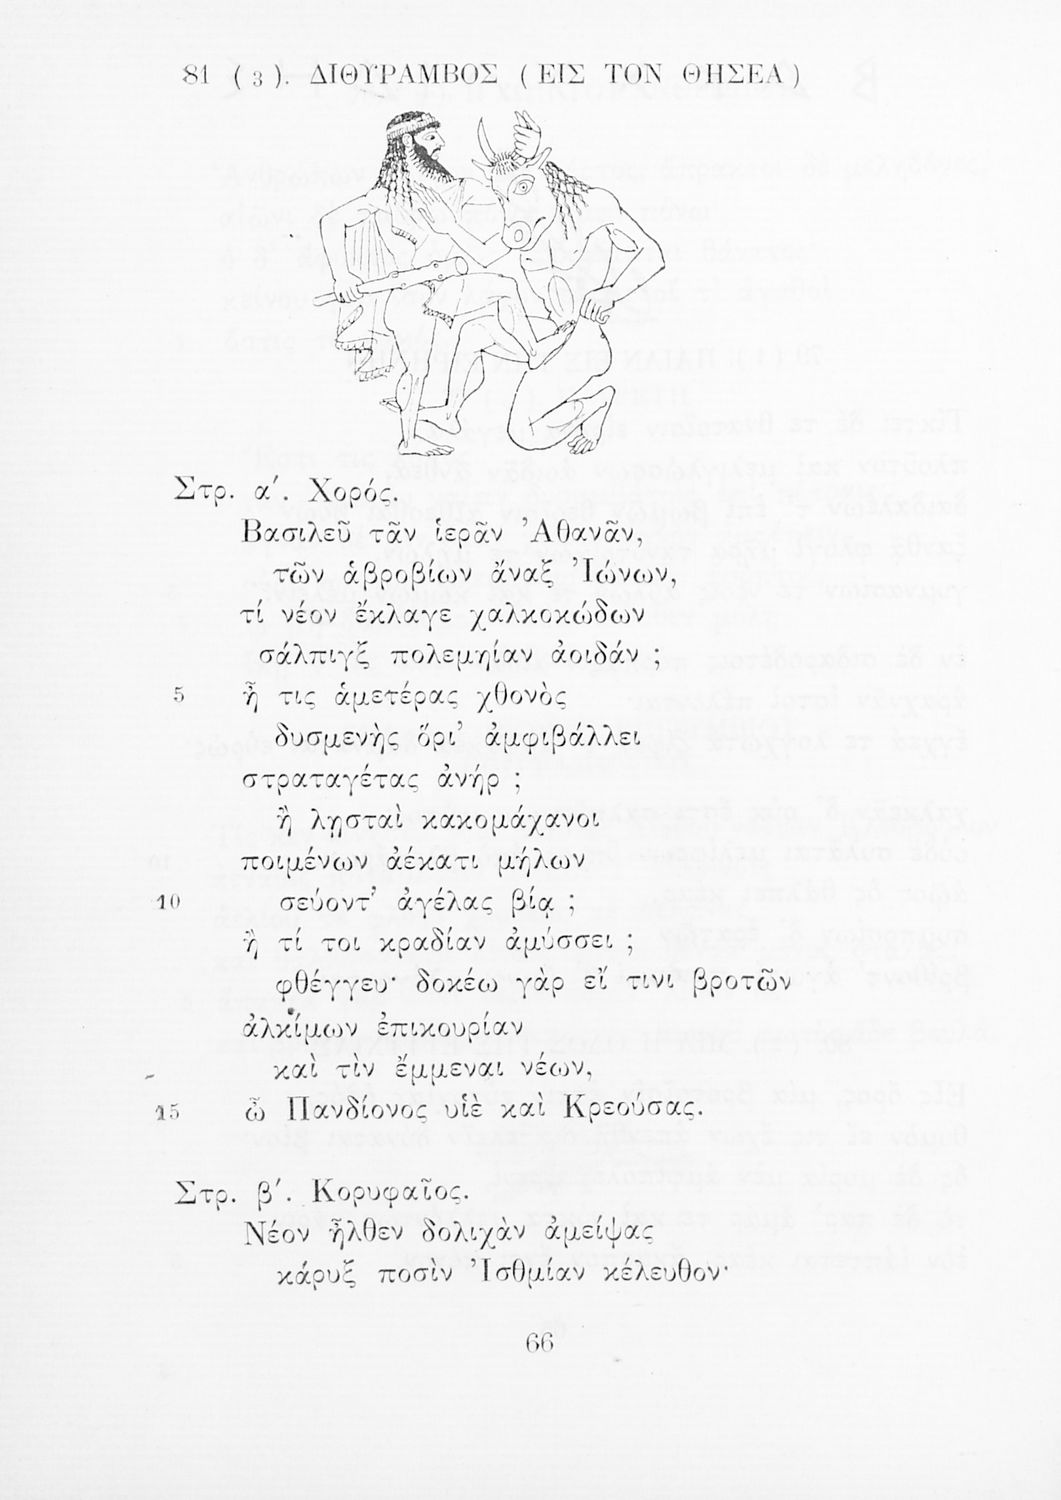 81 (3). ΔΙΘΥΡΑΜΒΟΣ (ΕΙΣ ΤΟΝ ΘΗΣΕΑ)
Στρ. α΄. Χορός.
Βασιλεῦ τᾶν ἱερᾶν Ἀθανᾶν,
τῶν ἁβροβίων ἄναξ Ἰώνων,
τί νέον ἔκλαγε χαλκοκώδων
σάλπιγξ πολεμηίαν ἀοιδάν ;
5 ἦ τις ἁμετέρας χθονὸς
δυσμενὴς ὅρι’ ἀμφιβάλλει
στραταγέτας ἀνήρ ;
ἢ λῃσταὶ κακομάχανοι
ποιμένων ἀέκατι μήλων
10 σεύοντ’ ἀγέλας βίᾳ ;
ἢ τί τοι κραδίαν ἀμύσσει ;
φθέγγευ· δοκέω γὰρ εἴ τινι βροτῶν
ἀλκίμων ἐπικουρίαν
καὶ τὶν ἔμμεναι νέων,
15 ὦ Πανδίονος υἱὲ καὶ Κρεούσας.
Στρ. β΄. Κορυφαῖος.
Νέον ἦλθεν δολιχὰν ἀμείψας
κάρυξ ποσὶν Ἰσθμίαν κέλευθον·
66